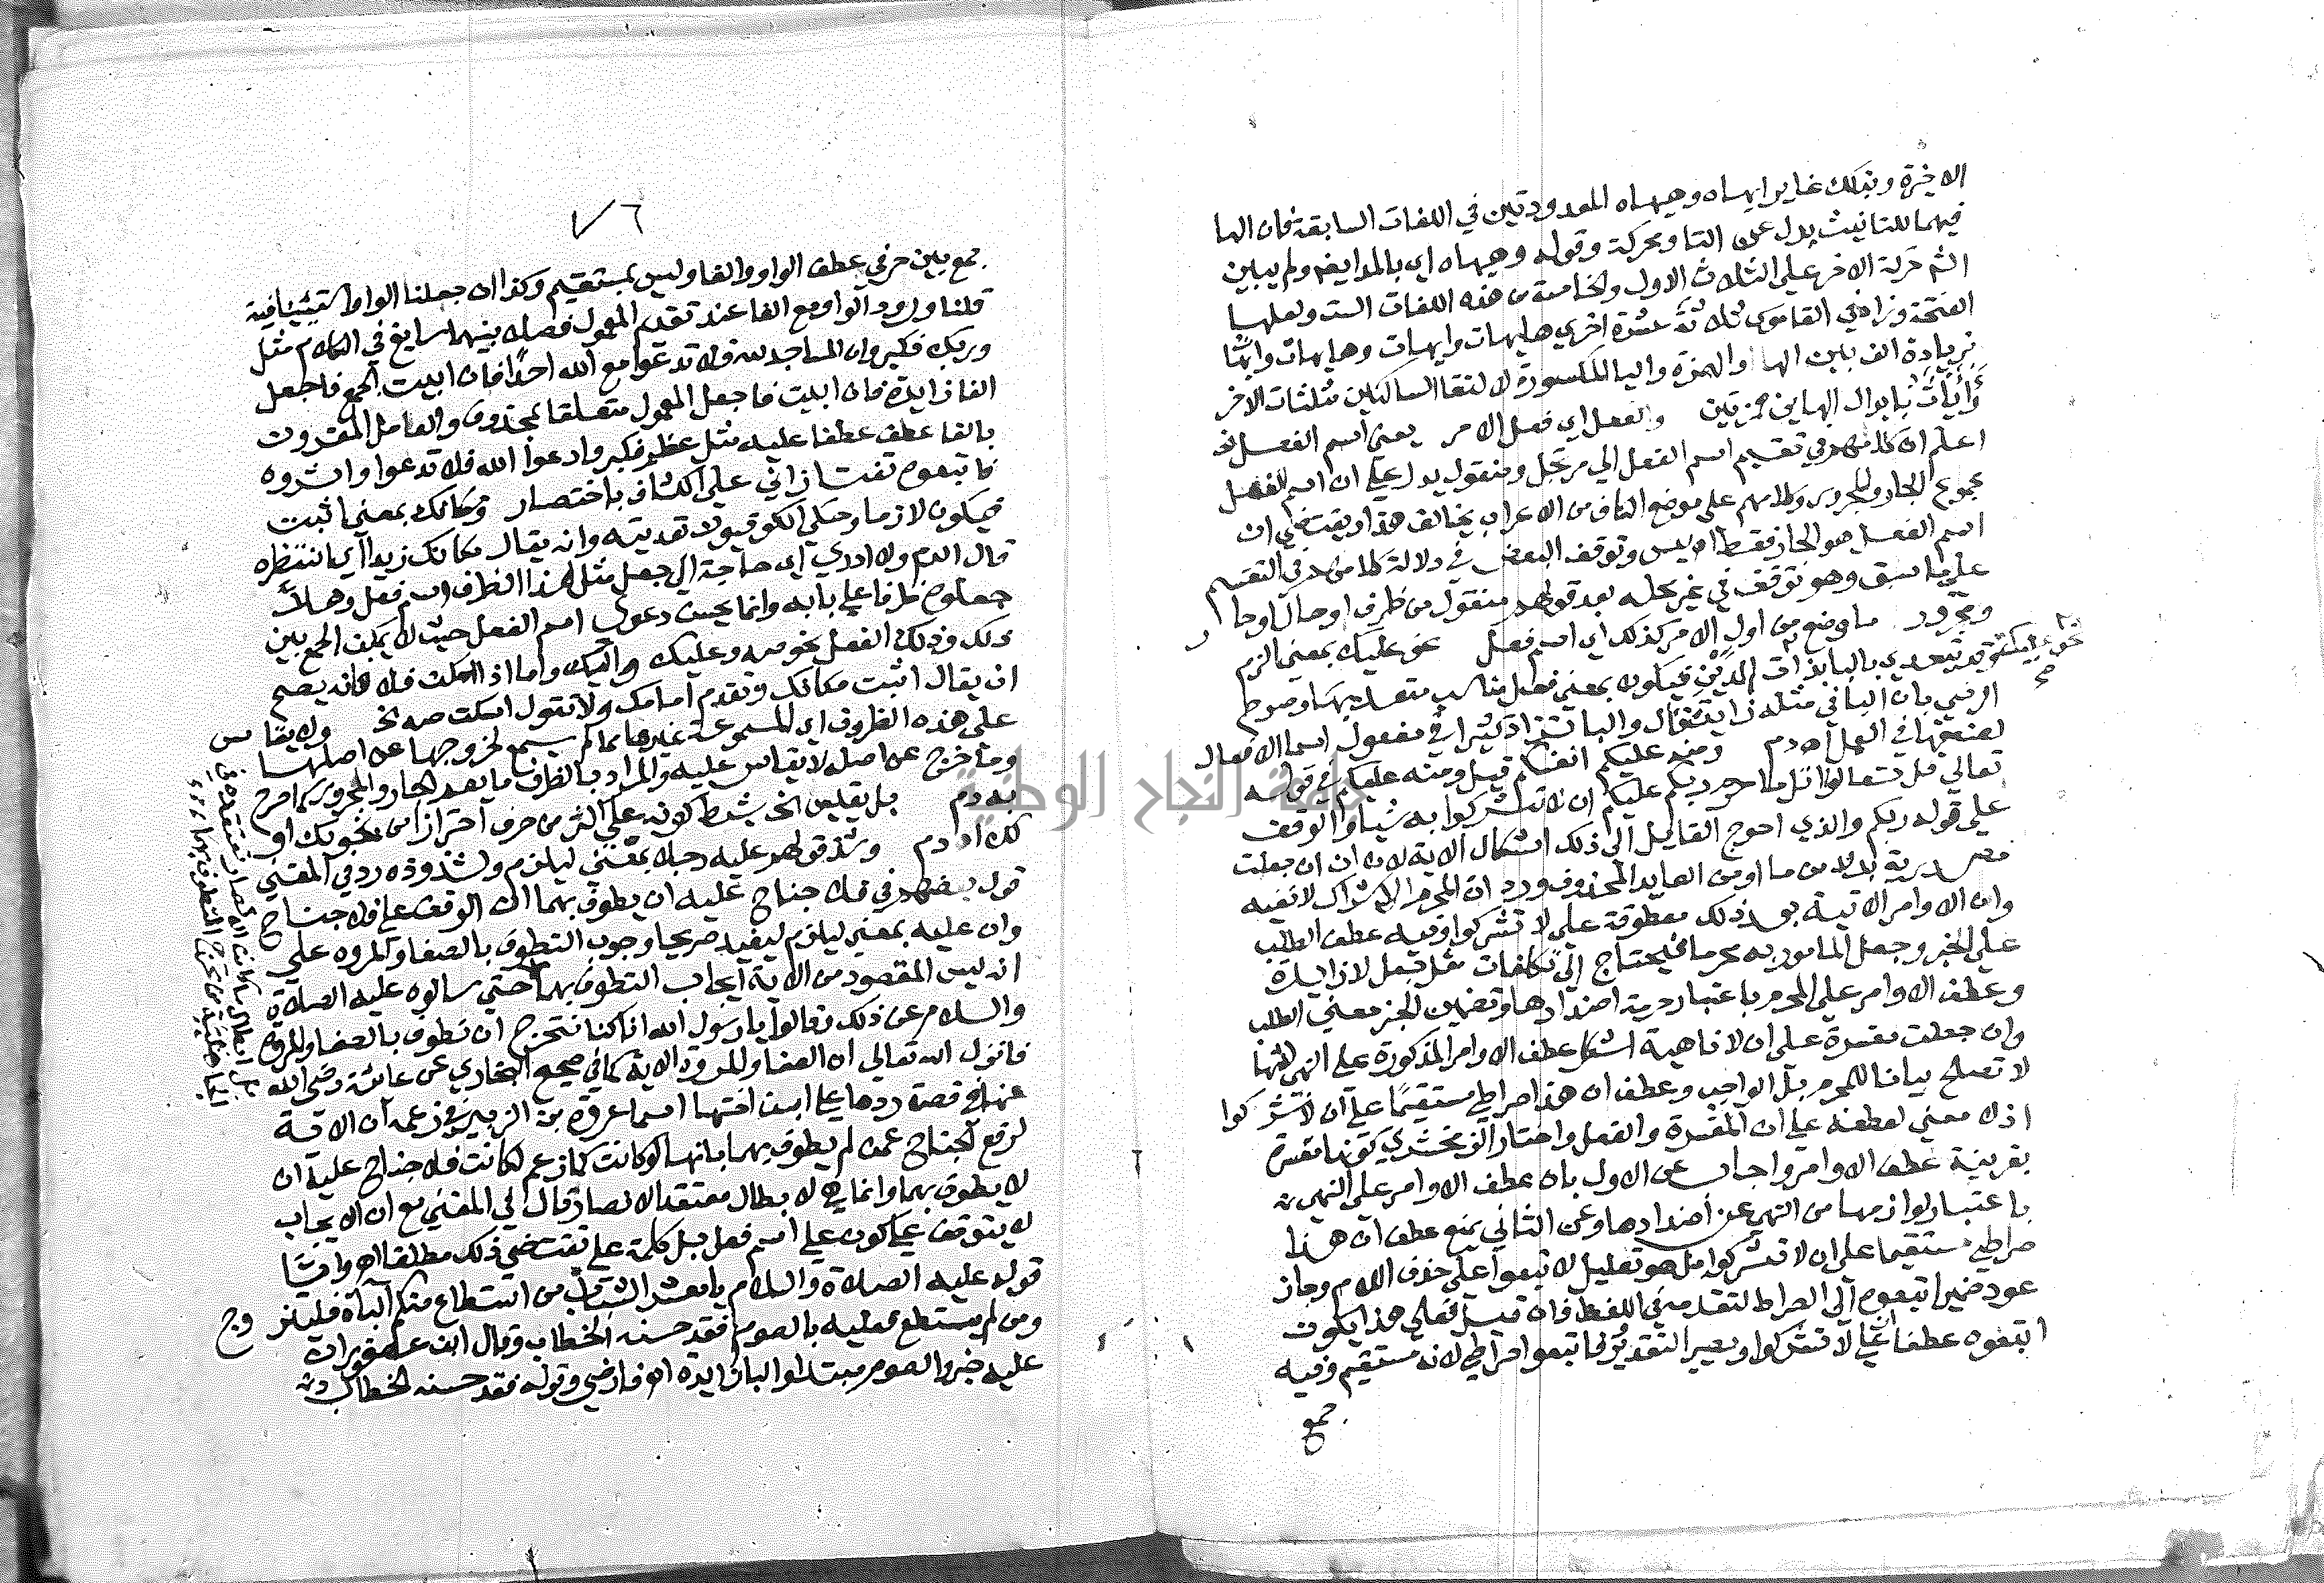 الاخيرة وبذلك غاير ايهاه وهيهاه المعدودتين في اللغات السابقة فان الها
فيهما للتانيث بدل عن التا ومحركة وقوله وهيهاه اي بالمد ايضا ولم يبين
الشم حركة الاخر على الثلاث الاول والخامسة من هذه اللغات الست ولعلها
الفتحة وزاد في القاموس ثلاثة عشرة اخري هايهات وايهات وهايهات وايئات
بزيادة الف بين الها والهمزة واليا المكسورة لالتقا الساكنين مثلثات الاخر
بابدال الهاين همزتين والفعل اي فعل الامر يعني اسم الفعل الخ
اعلم ان كلامهم في تقسيم اسم الفعل الي مرتجل ومنقول يدل علي ان اسم الفعل
مجموع الجار والمجرور وكلامهم على موضع الكاف من الاعراب يخالف هذا ويقتضي ان
اسم الفعل هو الجار فقط اه يس وتوقف البعض في دلالة كلامهم في التقسيم
على ما سبق وهو توقف في غير محله بعد قولهم منقول من ظرف او جار
ومجرور ما وضع من اول الامر كذلك اي اسم فعل نحو عليك بمعني الزم
وقد يتعدي بالبا نحو عليك بذات الدين فيكون بمعني فعل مناسب متعد بها وصرح
الرضي بان البا في مثله زايدة قال والبا تزاد كثيرا في مفعول اسما الافعال
لضعفها في العمل اه دم ومنه عليكم انفسكم قيل ومنه عليكم في قوله
تعالي قل تعالوا اتل ما حرم ربكم عليكم ان لا تشركوا به شيا والوقف
على قوله ربكم والذي احوج القايل الي ذلك اشكال الاية لان ان ان جعلت
مصدرية بدلا من ما او من العايد المحذوف ورد ان المحرم الاشراك لا نفيه
وان الاوامر الاتية بعد ذلك معطوفة على لا تشركوا وفيه عطف الطلب
على الخبر وجعل المامور به محرما فيحتاج الي تكلفات مثل جعل لا زايدة
وعطف الاوامر على المحرم باعتبار حرمة اضدادها وتضمين الخبر معني الطلب
وان جعلت مفسرة على ان لا ناهية اشكل عطف الاوامر المذكورة على النهي لانها
لا تصلح بيانا للمحرم بل الواجب وعطف ان هذا صراطي مستقيما على ان لا تشركوا
اذ لا معني لعطفه على ان المفسرة والفعل واختار الزمخشري كونها مفسرة
بقرينة عطف الاوامر واجاب عن الاول بان عطف الاوامر على النهي
باعتبار لوازمها من النهي عن اضدادها وعن الثاني بمنع عطف ان هذا
صراطي مستقيما على ان لا تشركوا بل هو تعليل لاتبعوا على حذف اللام وجاز
عود ضمير اتبعوه الي الصراط لتقدمه في اللفظ فان قيل فعلي هذا يكون
اتبعوه عطفا على لا تشركوا ويصير التقدير فاتبعوا صراطي لانه مستقيم وفيه
جمع
٧٦
جمع بين حرفي عطف الواو والفا وليس بمستقيم وكذا ان جعلنا الواو استئنافية
قلنا ورود الواو مع الفا عند تقدم المعمول فصلا بينهما سايغ في الكلام مثل
وربك فكبر وان المساجد لله فلا تدعوا مع الله احدا فان ابيت الجمع فاجعل
الفا زايدة فان ابيت فاجعل المعمول متعلقا بمحذوف والعامل المقرون
بالفا عطف عطفا عليه مثل عظم فكبر وادعوا الله فلا تدعوا واثروه
فاتبعوه تفتازاني على الكشاف باختصار ومكانك بمعني اثبت
فيكون لازما وحكي الكوفيون تعديته وانه يقال مكانك زيدا اي انتظره
قال الدم ولا ادري اي حاجة الي جعل مثل هذا الظرف اسم فعل وهلا
جعلوه ظرفا على بابه وانما يحسن دعوي اسم الفعل حيث لا يمكن الجمع بين
ذلك وذلك الفعل نحو صه وعليك واليك واما اذا امكن فلا فانه يصح
ان يقال اثبت مكانك وتقدم امامك ولا تقول اسكت صه الخ ولا يقاس
على هذه الظروف اي المسموعة غيرها مما لم يسمع لخروجها عن اصلها
وما خرج عن اصله لا يقاس عليه والمراد بالظرف ما يعم الجار والمجرور كما صرح
به دم بل يقيس الخ بشرط كونه على اكثر من حرف احترازا من نحو بك او
لك اه دم وشذ قولهم عليه رجلا بمعني ليلزم ولشذوذه رد في المغني
قول بعضهم في فلا جناح عليه ان يطوف بهما ان الوقف على فلا جناح
وان عليه بمعني ليلزم ليفيد صريحا وجوب التطوف بالصفا والمروه على
انه ليس المقصود من الاية ايجاب التطوف بهما حتي سالوه عليه الصلاة
والسلام عن ذلك وقالوا يا رسول الله انا كنا نتحرج ان نطوف بالصفا والمروة
فانزل الله تعالي ان الصفا والمروة الاية كما في صحيح البخاري عن عائشة رضي الله
عنها في قصة ردها علي ابن اختها اسما عروة بن الزبير في زعمه ان الاية
لرفع الجناح عمن لم يطوف بهما بانها لو كانت كما زعم لكانت فلا جناح عليه ان
لا يطوف بهما وانما هي لابطال معتقد الانصار قال في المغني مع ان الايجاب
لا يتوقف على كون على اسم فعل بل كلمة على تقتضي ذلك مطلقا اه واما
قوله عليه الصلاة والسلام يا معشر الشباب من استطاع منكم الباة فليتزوج
ومن لم يستطع فعليه بالصوم فقد حسنه الخطاب وقال ابن عصفور ان
عليه خبر والصوم مبتدا والبا زايدة اه فارضي وقوله فقد حسنه الخطاب